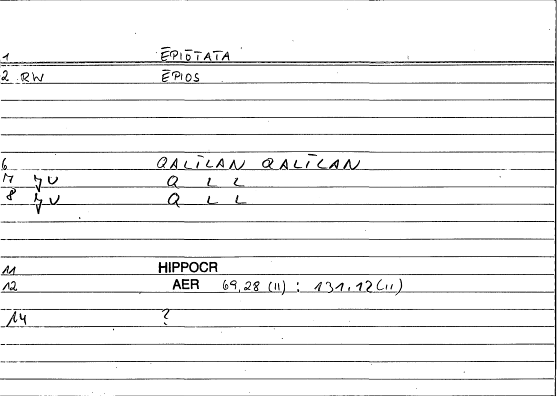 1 ĒPIŌTATA
2 RW ĒPIOS
6 QALĪLAN QALĪLAN
7 ȜU Q L L
8 ȜU Q L L
11 HIPPOCR
12 AER 69,28 (11) : 131,12 (11)
14 ?